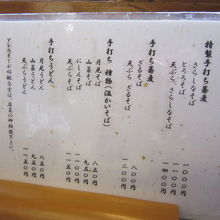 特製手打ち蕎麦
さらしなそば 一一〇〇円
とろろそば 一一〇〇円
天ぷら、さらしなそば 一四〇〇円
手打ち蕎麦
ざるそば 八〇〇円
天ぷら ざるそば 一一〇〇円
手打ち 種物(温かいそば)
月見そば 八五〇円
山菜そば 九五〇円
にしんそば
天ぷらそば 一一五〇円
手打ちうどん
月見うどん 八五〇円
山菜うどん 九五〇円
天ぷらうどん 一一五〇円